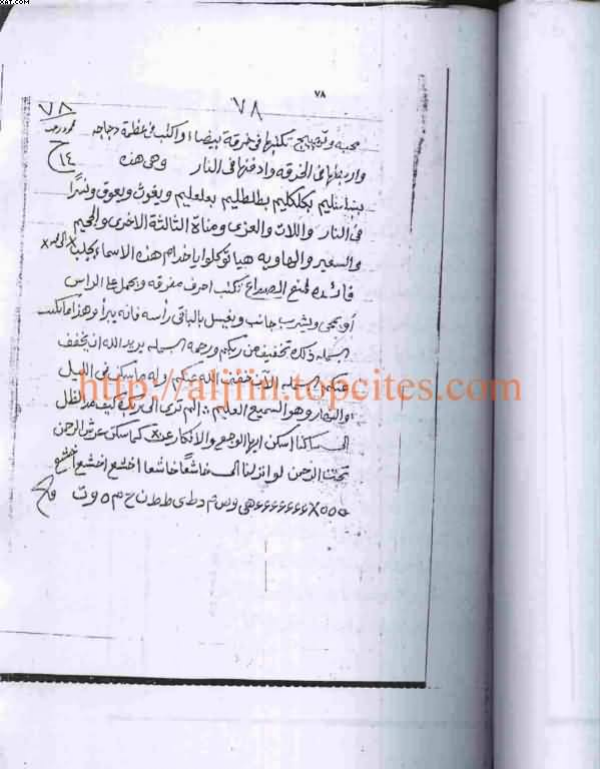 XAT.COM
٧٨
٧٨
٧٨
محبة وتهييج تكتبها في خرقة بيضاء واكتب في عظمة دجاجه
١٤
وارميها في الخرقه وادفنها في النار وهي هذه
بكلكليم بطلطليم بعلعليم ويغوث ويعوق ونسرا
في النار واللات والعزى ومناة الثالثة الاخرى والجحيم
والسعير والهاويه هيا توكلوا يا خدام هذه الاسماء بجلب
فائده لمنع الصداع تكتب احرف مفرقه ويحمل على الراس
أو يمحى ويشرب جانب ويغسل بالباقي رأسه فانه يبرأ وهذا ما تكتب
البسمله ذلك تخفيف من ربكم ورحمه البسمله يريد الله ان يخفف
عنكم البسمله الآن خفف الله عنكم وله ما سكن في الليل
http://aljiin.topcites.com
والنهار وهو السميع العليم الم ترى الى ربك كيف مد الظل
الى ساكنا اسكن ايها الوجع والا كما سكن عرش الرحمن
تحتنا الرحمن لو انزلنا الى خاشعا خاشعا اخشع اخشع اخشع